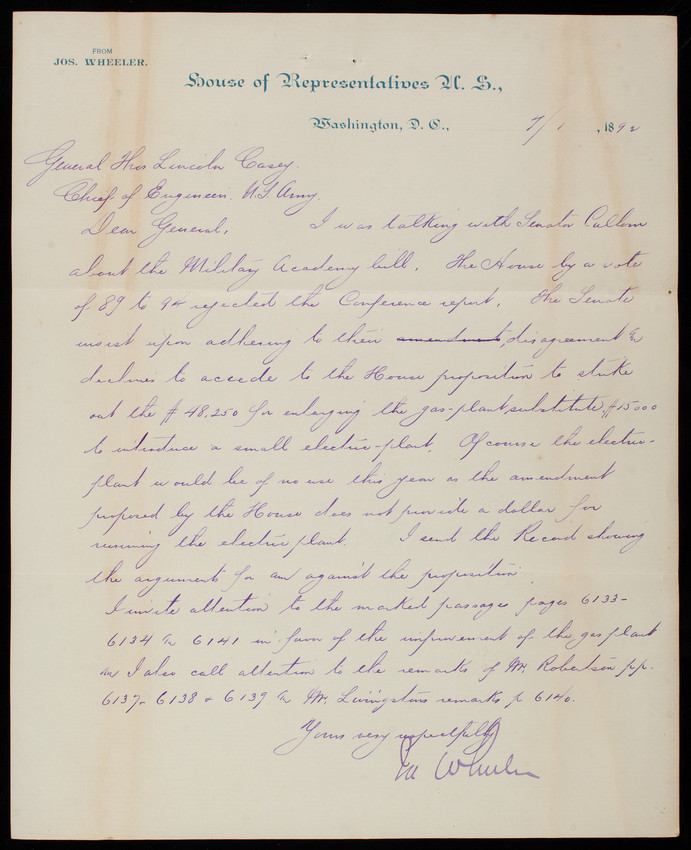 FROM
JOS. WHEELER.
House of Representatives U. S.,
Washington, D. C., 7/1, 1892
General Thos Lincoln Casey.
Chief of Engineers. U.S. Army.
Dear General, I was talking with Senator Cullom
about the Military Academy bill. The House by a vote
of 89 to 94 rejected the Conference report. The Senate
insist upon adhering to their amendments, disagreement &
declines to accede to the House proposition to strike
out the $48.250 for enlarging the gas-plant, substitute, $15000
to introduce a small electric-plant. Of course the electric-
plant would be of no use this year as the amendment
proposed by the House does not provide a dollar for
running the electric plant. I send the Record showing
the arguments for an against the proposition
I invite attention to the marked passages pages 6133-
6134 & 6141 in favor of the improvement of the gas plant
& I also call attention to the remarks of Mr. Robertson pp.
6137- 6138 & 6139 & Mr. Livingstons remarks p 6140.
Yours very respectfully
Jos Wheeler